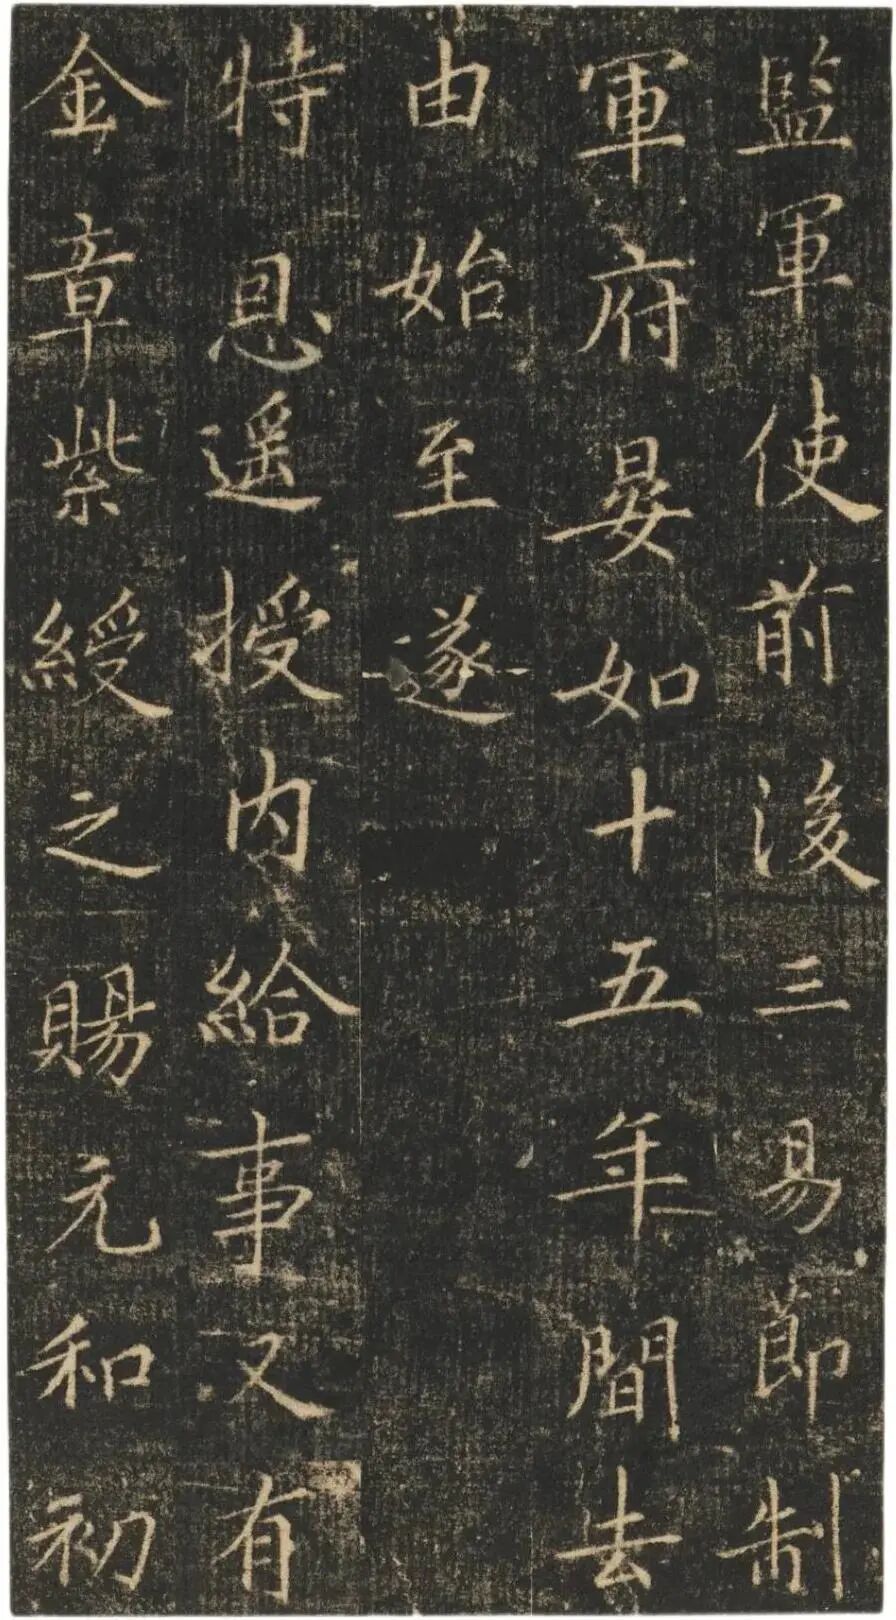 監軍使前後三易節制
軍府晏如十五年間去
由始至遂
特恩遥授内給事又有
金章紫綬之賜元和初